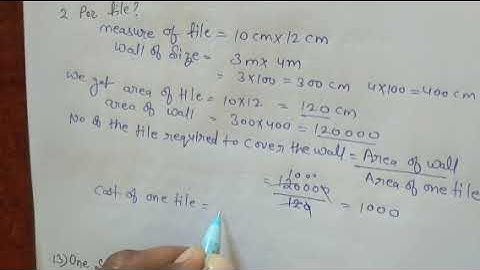 2 per tile?
measure of tile = 10 cm x 12 cm
wall of Size = 3m x 4m
= 3x100 = 300 cm 4x100 = 400 cm
we get area of tile = 10x12 = 120 cm
area of wall = 300x400 = 120000
No of the tile required to cover the wall = Area of wall
Area of one tile
= 120000 1000
120 = 1000
Cost of one tile =
13) One